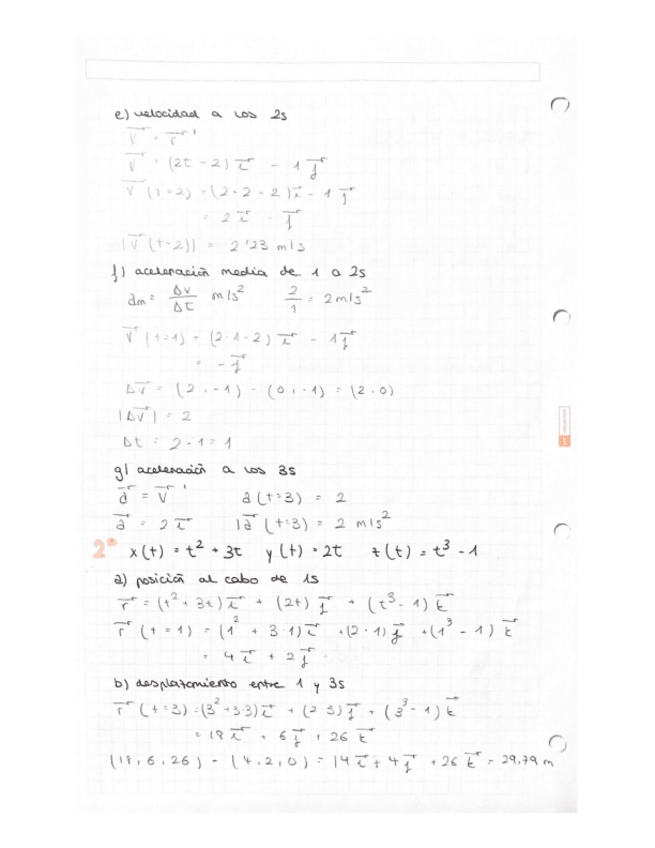 e) velocidad a los 2s
v⃗ = r⃗ '
v⃗ = (2t - 2) i⃗ - 1 j⃗
v⃗ (t=2) = (2·2 - 2) i⃗ - 1 j⃗
= 2 i⃗ - j⃗
|v⃗ (t=2)| = 2'23 m/s
f) aceleración media de 1 a 2s
am = Δv/Δt m/s² 2/1 = 2m/s²
v⃗ (t=1) = (2·1-2) i⃗ - 1 j⃗
= - j⃗
Δv⃗ = (2, -1) - (0, -1) = (2, 0)
|Δv⃗| = 2
Δt = 2 - 1 = 1
g) aceleración a los 3s
a⃗ = v⃗ ' a (t=3) = 2
a⃗ = 2 i⃗ |a⃗ (t=3) = 2 m/s²
2º x(t) = t² + 3t y(t) = 2t z(t) = t³ - 1
a) posición al cabo de 1s
r⃗ = (t² + 3t) i⃗ + (2t) j⃗ + (t³ - 1) k⃗
r⃗ (t = 1) = (1² + 3·1) i⃗ + (2·1) j⃗ + (1³ - 1) k⃗
= 4 i⃗ + 2 j⃗
b) desplazamiento entre 1 y 3s
r⃗ (t=3) = (3² + 3·3) i⃗ + (2·3) j⃗ + (3³ - 1) k⃗
= 18 i⃗ + 6 j⃗ + 26 k⃗
(18, 6, 26) - (4, 2, 0) = 14 i⃗ + 4 j⃗ + 26 k⃗ = 29,79 m